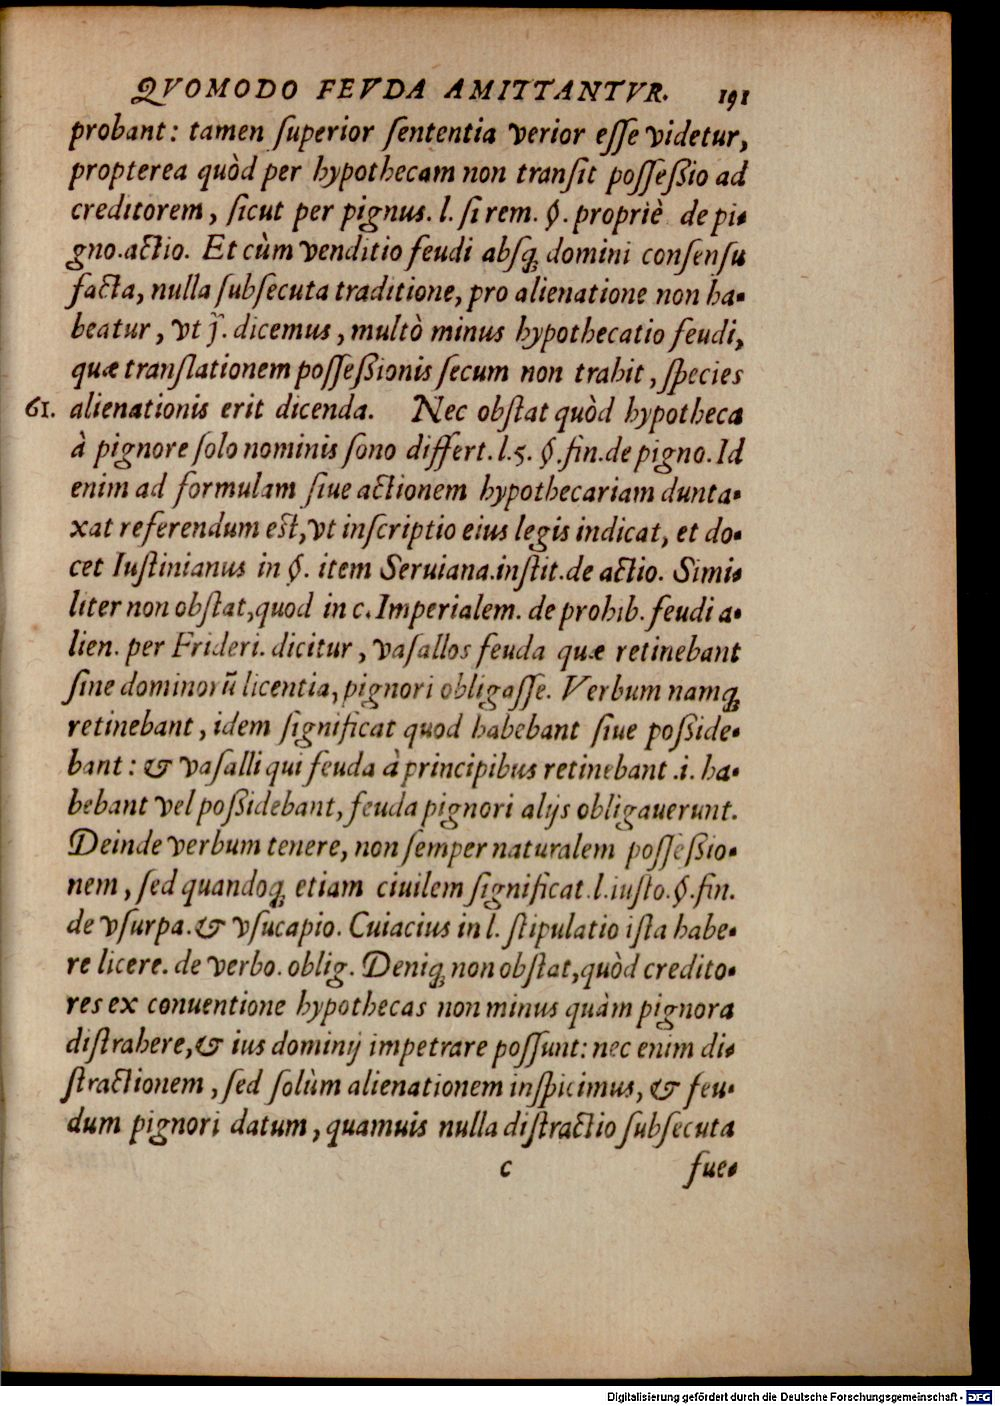 QVOMODO FEVDA AMITTANTVR. 191
probant: tamen ſuperior ſententia verior eſſe videtur,
propterea quòd per hypothecam non tranſit poſſeßio ad
creditorem, ſicut per pignus. l. ſi rem. §. propriè de pi-
gno.actio. Et cùm venditio feudi abſq; domini conſenſu
facta, nulla ſubſecuta traditione, pro alienatione non ha-
beatur, vt j. dicemus, multò minus hypothecatio feudi,
quæ tranſlationem poſſeßionis ſecum non trahit, ſpecies
61. alienationis erit dicenda. Nec obſtat quòd hypotheca
à pignore ſolo nominis ſono differt. l.5. §.fin.de pigno. Id
enim ad formulam ſiue actionem hypothecariam dunta-
xat referendum eſt, vt inſcriptio eius legis indicat, et do-
cet Iuſtinianus in §. item Seruiana.inſtit.de actio. Simi-
liter non obſtat, quod in c. Imperialem. de prohib. feudi a-
lien. per Frideri. dicitur, vaſallos feuda quæ retinebant
ſine dominorū licentia, pignori obligaſſe. Verbum namq;
retinebant, idem ſignificat quod habebant ſiue poßide-
bant: & vaſalli qui feuda à principibus retinebant .i. ha-
bebant vel poßidebant, feuda pignori alijs obligauerunt.
Deinde verbum tenere, non ſemper naturalem poſſeßio-
nem, ſed quandoq; etiam ciuilem ſignificat. l. iuſto. §. fin.
de vſurpa. & vſucapio. Cuiacius in l. ſtipulatio iſta habe-
re licere. de verbo. oblig. Deniq; non obſtat, quòd credito-
res ex conuentione hypothecas non minus quàm pignora
diſtrahere, & ius dominij impetrare poſſunt: nec enim di-
ſtractionem, ſed ſolùm alienationem inſpicimus, & feu-
dum pignori datum, quamuis nulla diſtractio ſubſecuta
c fue-
Digitalisierung gefördert durch die Deutsche Forschungsgemeinschaft - DFG